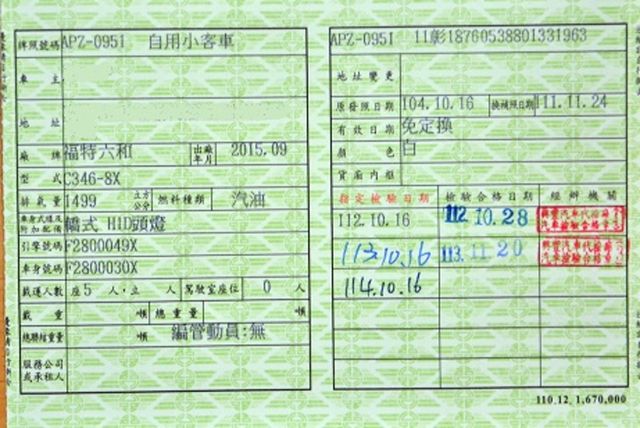 牌照號碼 APZ-0951 自用小客車
車主
地址
廠牌 福特六和 出廠年月 2015.09
型式 C346-8X
排氣量 1499 立方公分 燃料種類 汽油
車身式樣及附加配備 轎式 HID頭燈
引擎號碼 F2800049X
車身號碼 F2800030X
載運人數 座 5 人,立 人 駕駛室座位 0 人
載重 噸 總重量 噸
總聯結重量 噸 編管動員:無
服務公司或承租人
APZ-0951 11彰18760538801331963
地址變更
原發照日期 104.10.16 換補照日期 111.11.24
有效日期 免定換
顏色 白
貨廂內框
指定檢驗日期 檢驗合格日期 經辦機關
112.10.16 112.10.28
113.10.16 113.11.20
114.10.16
110.12. 1,670,000